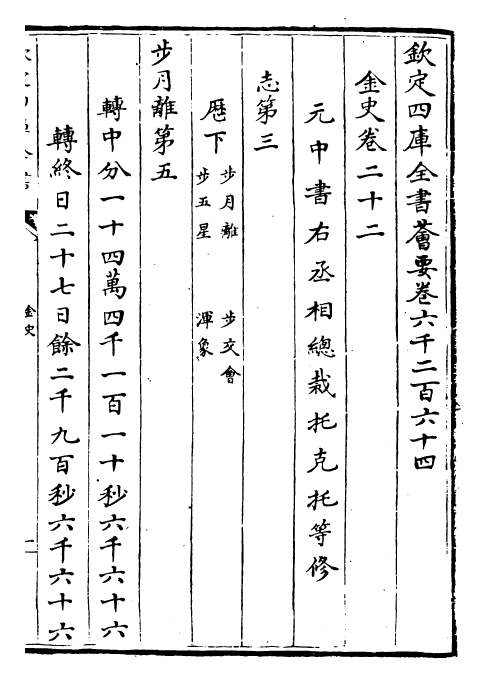 欽定四庫全書薈要卷六千二百六十四
金史卷二十二
元中書右丞相總裁托克托等修
志第三
厯下
步月離
步五星
步交會
渾象
步月離第五
轉中分一十四萬四千一百一十秒六千六十六
轉終日二十七日餘二千九百秒六千六十六
金史